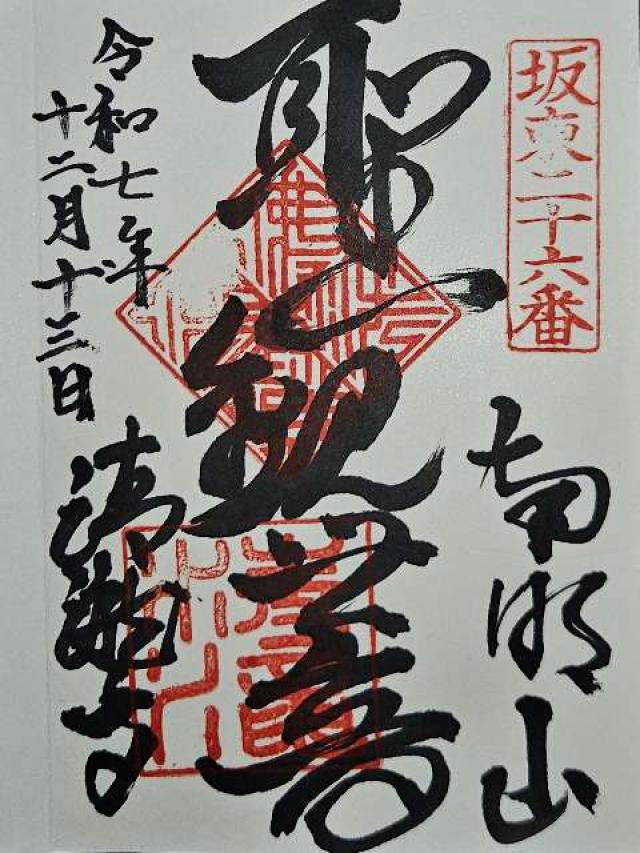 坂東二十六番
南明山
聖観世音
令和七年
十二月十三日
清瀧寺